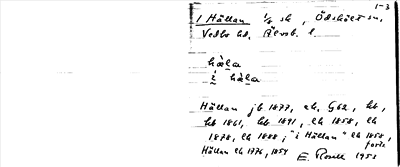 1-3
1 Hällan 1/2 sk, Ödskölt sn,
Vedbo hd. Älvsb. l.
hàla
i hàla
Hällan jb 1877, ek, G62, kb,
kb 1861, kb 1891, ek 1858, ek
1878, ek 1888; "i Hällan" ek 1858,
Hällan ek 1776, 1854
E. Rosell 1953